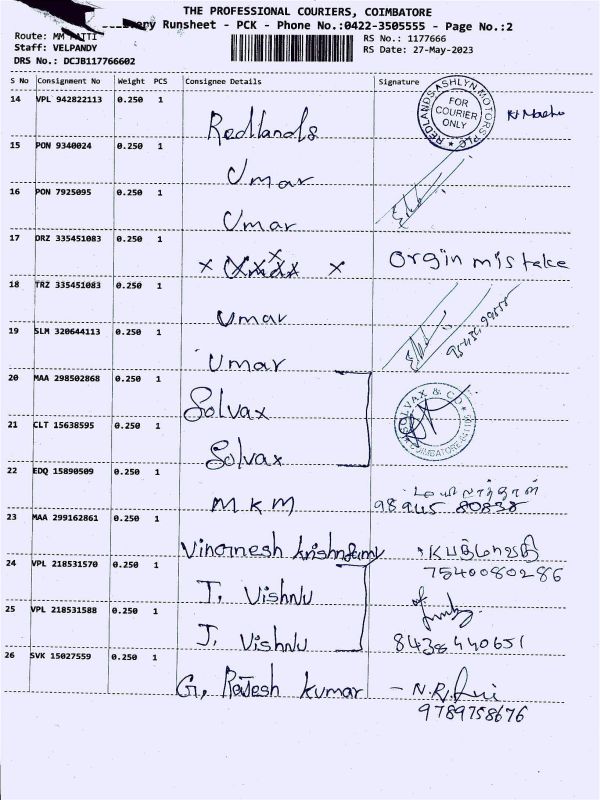 THE PROFESSIONAL COURIERS, COIMBATORE
Runsheet - PCK - Phone No.:0422-3505555 - Page No.:2
Route: MM
Staff: VELPANDY
DRS No.: DCJB117766602
RS No.: 1177666
RS Date: 27-May-2023
S No Consignment No Weight PCS Consignee Details Signature
14 VPL 942822113 0.250 1 Redlands
REDLANDS ASHLYN MOTORS PLC
FOR
COURIER
ONLY
15 PON 9340024 0.250 1 Umar
16 PON 7925095 0.250 1 Umar
17 DRZ 335451083 0.250 1 x Umar x Orgin mistake
18 TRZ 335451083 0.250 1 Umar
19 SLM 320644113 0.250 1 Umar
20 MAA 298502868 0.250 1 Solvax
SOLVAX & CO
21 CLT 15638595 0.250 1 Solvax
22 EDQ 15890509 0.250 1 MKM
98945 80838
23 MAA 299162861 0.250 1
7540080286
24 VPL 218531570 0.250 1 J. Vishnu
25 VPL 218531588 0.250 1 J. Vishnu
8438440651
26 SVK 15027559 0.250 1 G. Rajesh kumar
9789758676